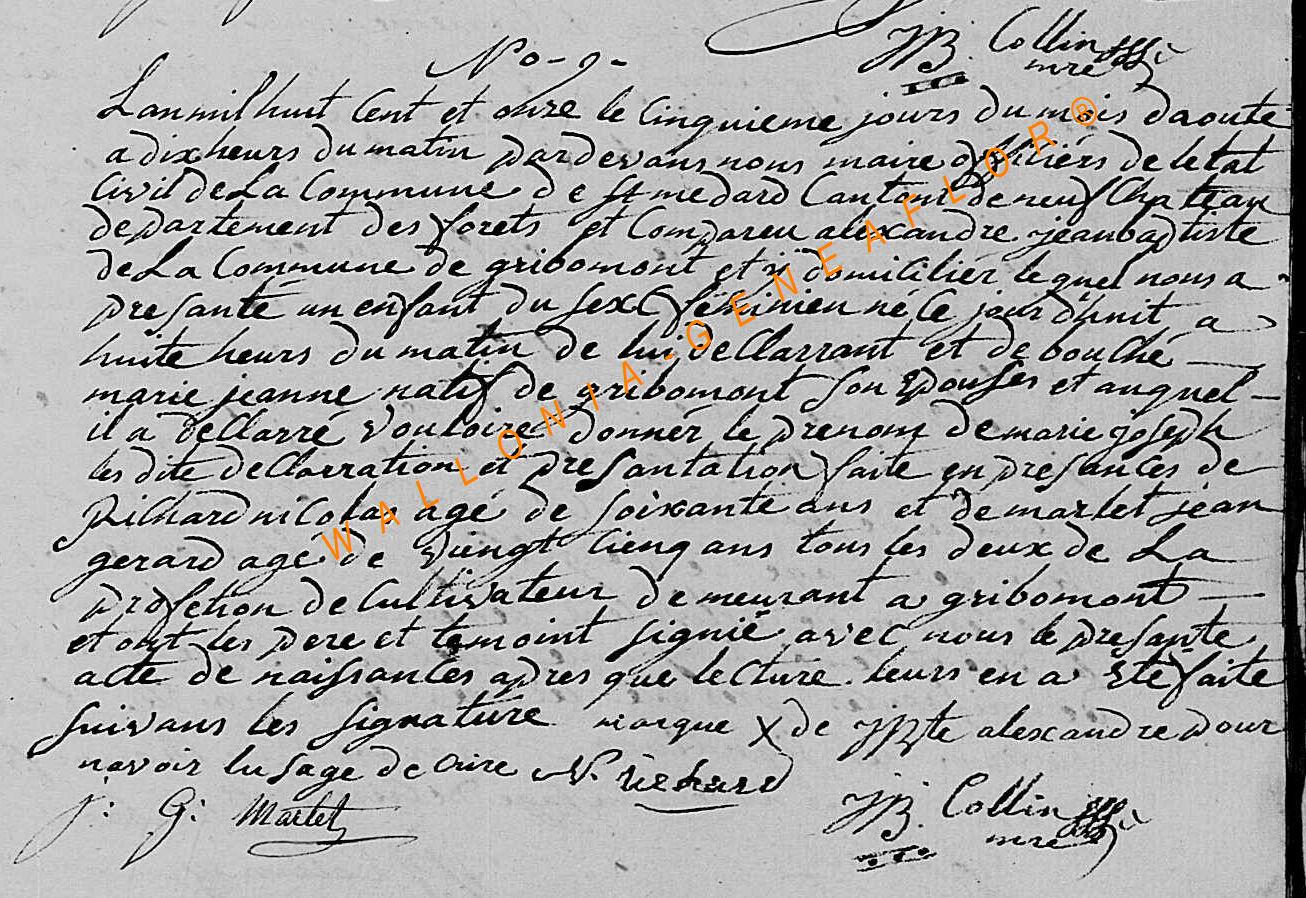 JB Collin
mre
No - 9 -
Lan mil huit Cent et onze le Cinquieme jours du mois daoute
a dix heurs du matin pardevans nous maire officiérs de letat
Civil de La Commune de St medard Canton de neufchateau
departement des forets et Compareu alexandre jeanbaptiste
de La Commune de gribomont et y domiciliér lequel nous a
presanté un enfant du sexe féminien né Ce jour d'huit a
huite heurs du matin de lui declarrant et de bouché
marie jeanne natif de gribomont son Epouses et auquel
il a declarré vouloire donnér le prenom de marie joseph
les dite declarration et presantation faite en presances de
Richard nicolas agé de soixante ans et de marlet jean
gerard agé de viengt cienq ans tous les deux de La
profetion de Cultivateur demeurant a gribomont
et ont les pere et temoint signié avec nous le presante
acte de naissances apres que lecture leurs en a Eté faite
suivans les signature marque X de JBte alexandre pour
navoir lusage de crire N. richard
j: G: Marlet
JB Collin
mre
WALLONIA-GENEAFLOR®